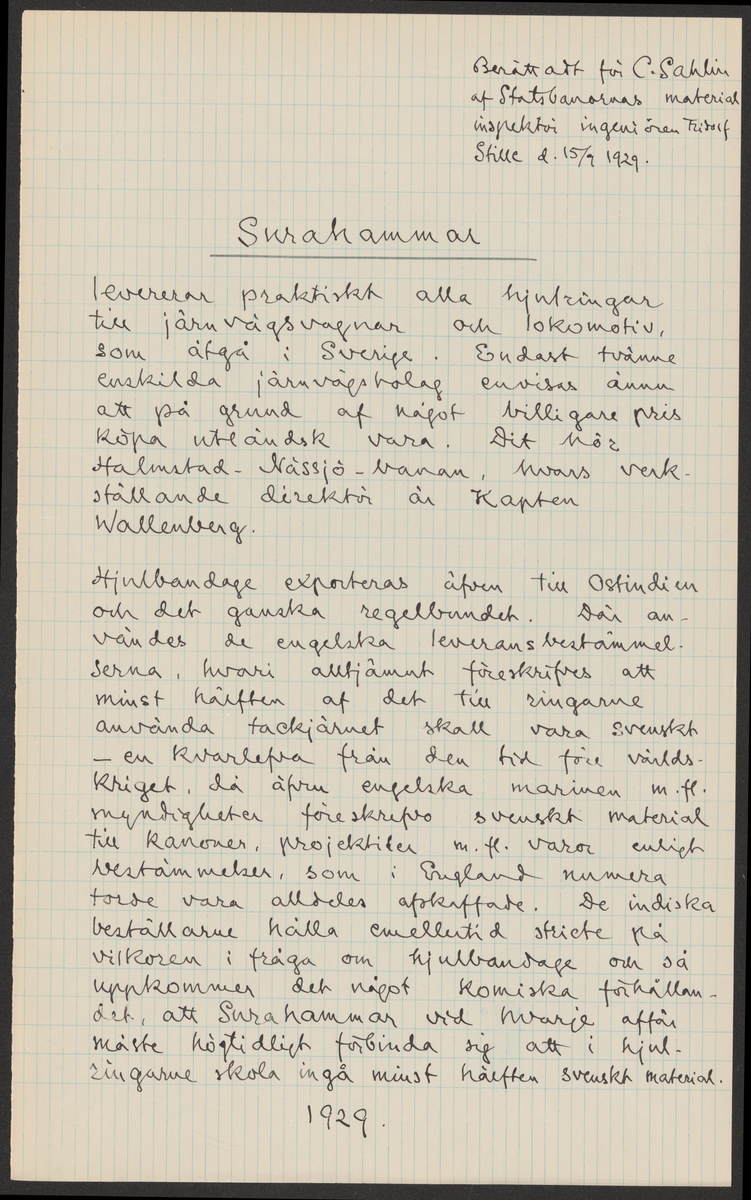 Berättadt för C. Sahlin
af Statsbanornas material
inspektör ingeniören Fridolf
Stille d. 15/9 1929.
Surahammar
levererar praktiskt alla hjulringar
till järnvägsvagnar och lokomotiv,
som åtgå i Sverige. Endast tvänne
enskilda järnvägsbolag envisas ännu
att på grund af något billigare pris
köpa utländsk vara. Dit hör
Halmstad-Nässjö-banan, hvars verk-
ställande direktör är Kapten
Wallenberg.
Hjulbandage exporteras äfven till Ostindien
och det ganska regelbundet. Där an-
vändes de engelska leveransbestämmel-
serna, hvari alltjämnt föreskrifves att
minst hälften af det till ringarne
använda tackjärnet skall vara svenskt
– en kvarlefva från den tid före världs-
kriget, då äfven engelska marinen m.fl.
myndigheter föreskrefvo svenskt material
till kanoner, projektiler m.fl. varor enligt
bestämmelser, som i England numera
torde vara alldeles afskaffade. De indiska
beställarne hålla emellertid stricte på
vilkoren i fråga om hjulbandage och så
uppkommer det något komiska förhållan-
det, att Surahammar vid hvarje affär
måste högtidligt förbinda sig att i hjul-
ringarne skola ingå minst hälften svenskt material.
1929.